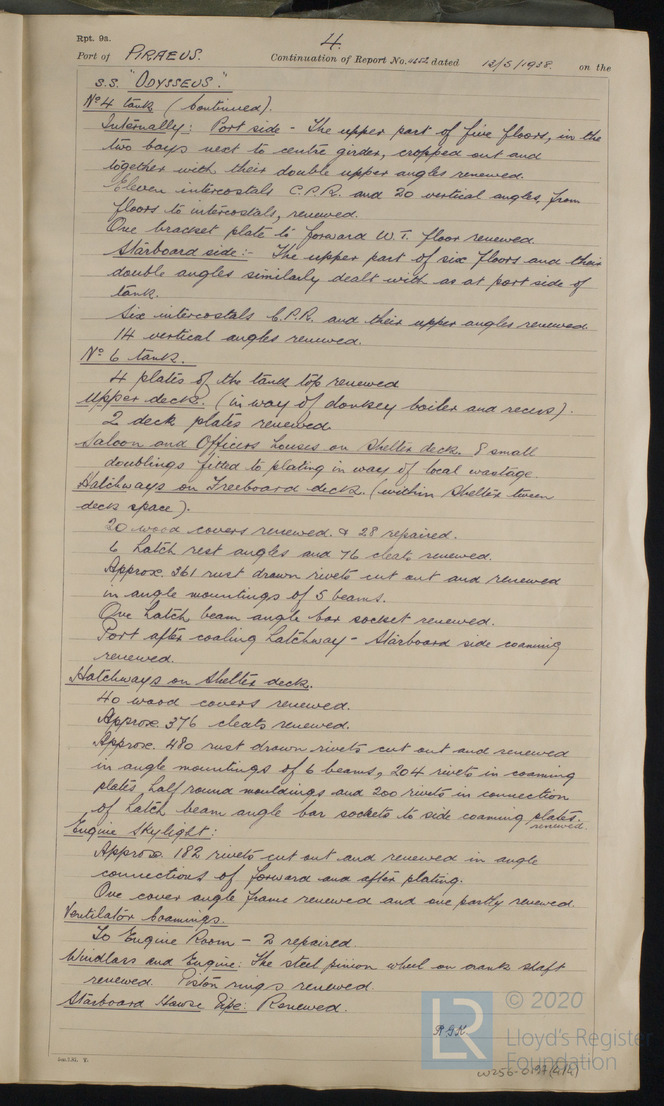 Rpt. 9a.
4.
Port of PIRAEUS. Continuation of Report No. dated 13/5/1938. on the
S.S. "ODYSSEUS".
No 4 tank (Continued).
Internally: Port side - The upper part of five floors, in the
two bays next to centre girder, cropped out and
together with their double upper angles renewed.
Eleven intercostals C.P.R. and 20 vertical angles, from
floors to intercostals, renewed.
One bracket plate to forward W.T. floor renewed.
Starboard side:- The upper part of six floors and their
double angles similarly dealt with as at port side of
tank.
Six intercostals C.P.R. and their upper angles renewed
14 vertical angles renewed.
No 6 tank.
4 plates of the tank top renewed
Upper deck. (in way of donkey boiler and recess).
2 deck plates renewed.
Saloon and Officers houses on Shelter deck. 8 small
doublings fitted to plating in way of local wastage.
Hatchways on Freeboard deck. (within Shelter tween
deck space).
20 wood covers renewed. & 28 repaired.
6 hatch rest angles and 76 cleats renewed.
Approx. 361 rust drawn rivets cut out and renewed
in angle mountings of 5 beams.
One hatch beam angle bar socket renewed.
Port after coaling hatchway - Starboard side coaming
renewed.
Hatchways on Shelter deck.
40 wood covers renewed.
Approx. 376 cleats renewed.
Approx. 480 rust drawn rivets cut out and renewed
in angle mountings of 6 beams, 204 rivets in coaming
plates, half round mouldings and 200 rivets in connection
of hatch beam angle bar sockets to side coaming plates.
renewed.
Engine Skylight:
Approx. 182 rivets cut out and renewed in angle
connections of forward and after plating.
One cover angle frame renewed and one partly renewed.
Ventilator Coamings.
To Engine Room - 2 repaired.
Windlass and Engine: The steel pinion wheel on crank shaft
renewed. Piston rings renewed.
Starboard Hawse Pipe: Renewed.
LR
© 2020
Lloyd's Register
Foundation
W256-0197(4/4)